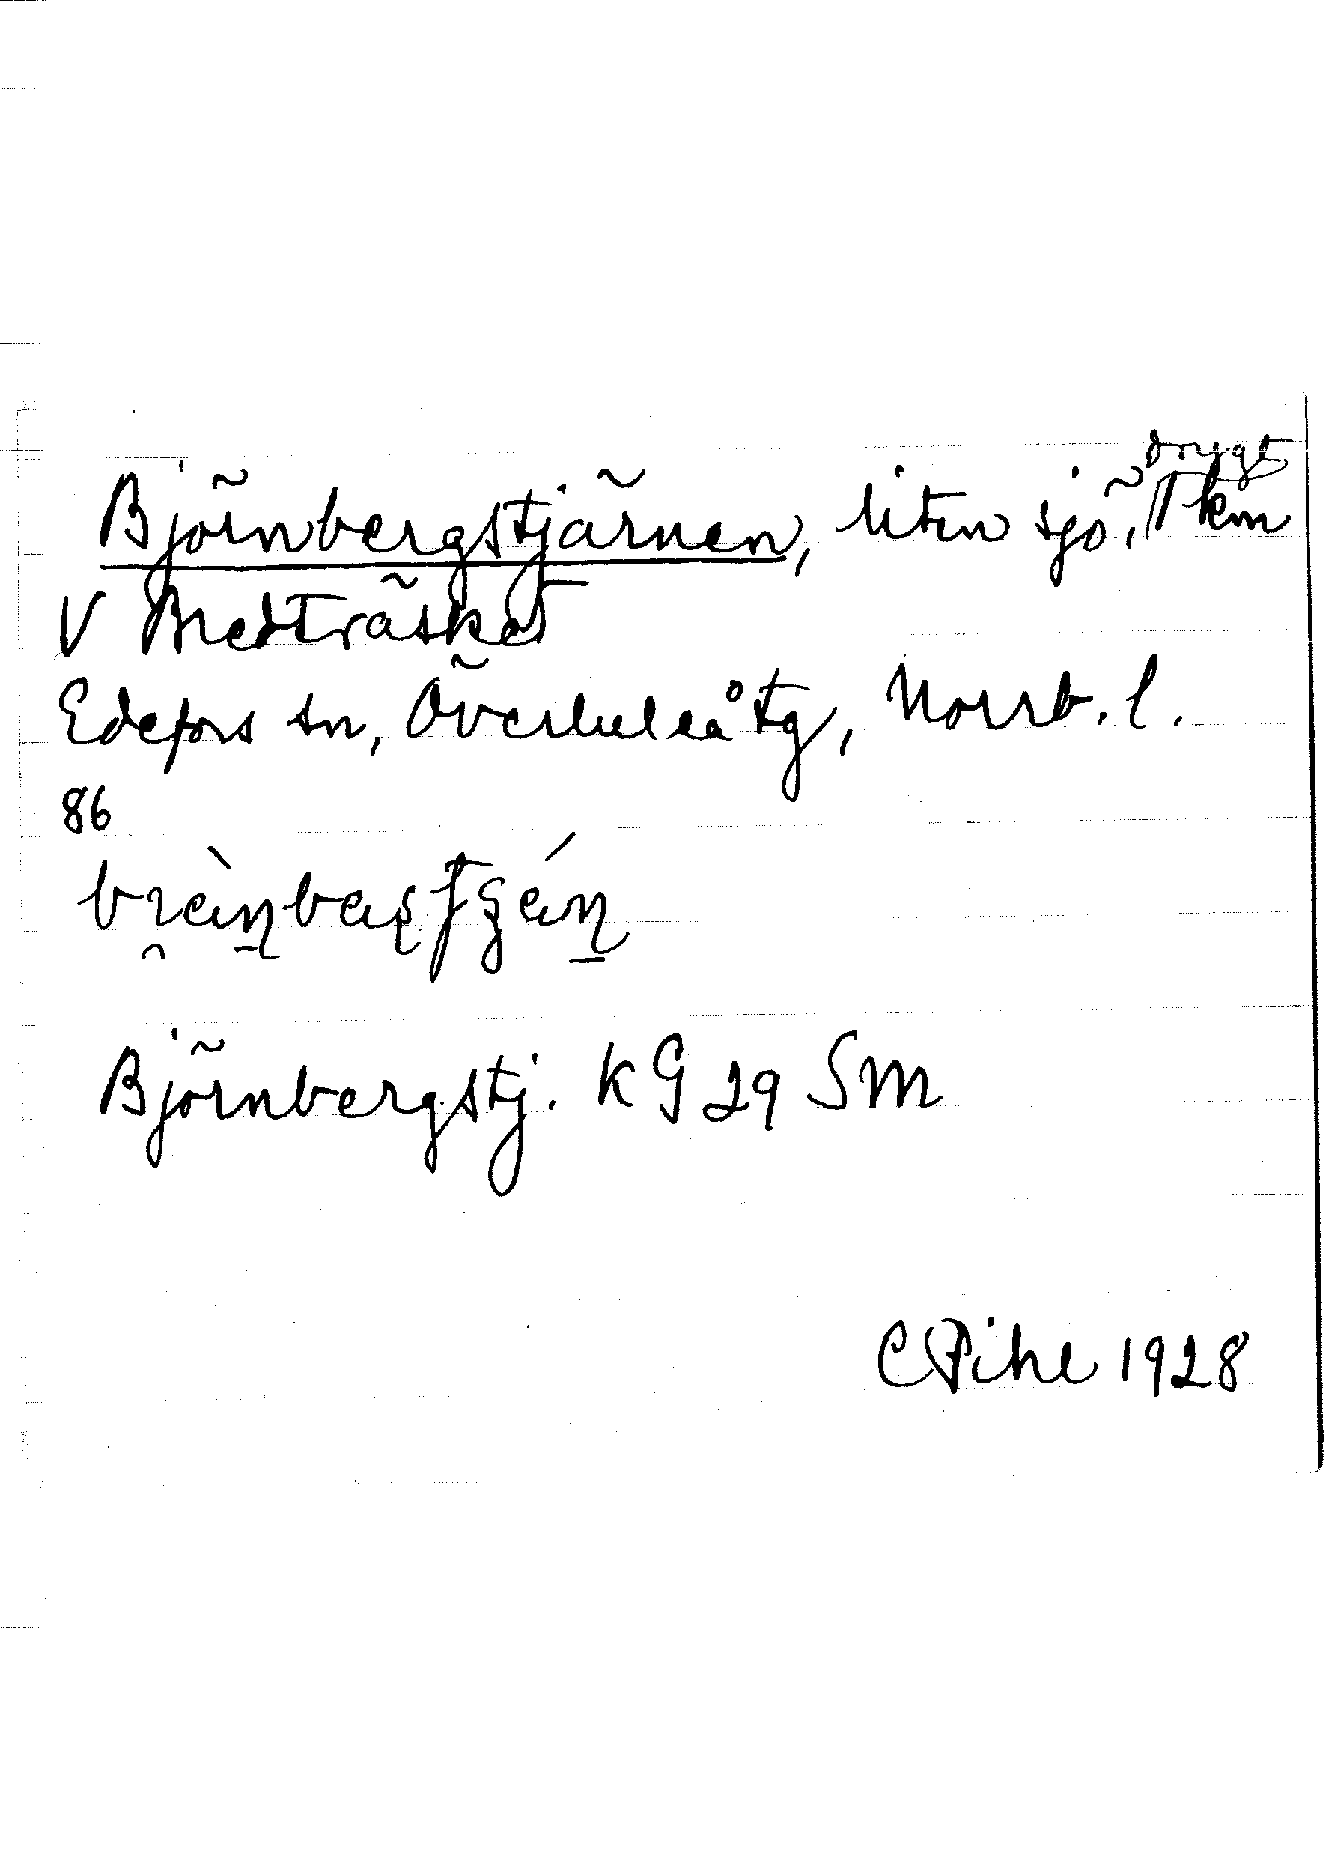 Björnbergstjärnen, liten sjö, drygt 1 km
V Bredträsket
Edefors sn, Överluleå tg, Norrb. l.
86
Björnbergstj. KG 29 SM
C Pihl 1928